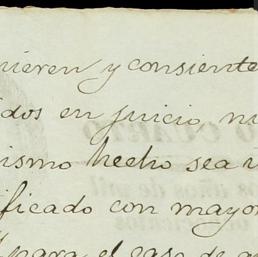 nieren y consiente
idos en juicio, ni
nismo hecho sea v
ificado con mayor
para el caso de q